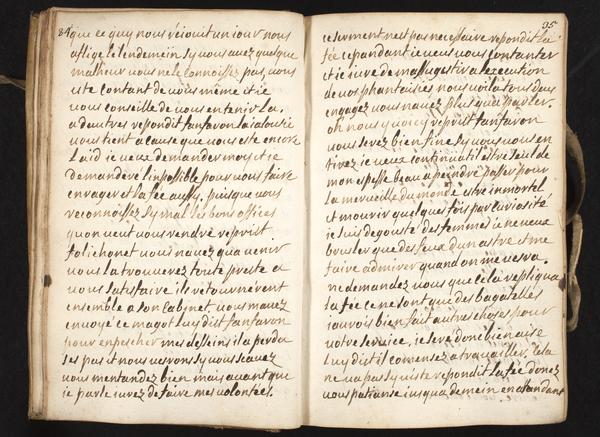 84
que ce quy nous réiouit un iour nous
aflige le lendemein sy vous auez quelque
malheur vous ne le connoissez pas, vous
este contant de vous même et ie
vous conseille de vous en tenir la.
a d'autres respondit fanfaron la ialousie
vous tient a cause que vous este encore
laid ie veux demander moy et ie
demanderé l'impossible pour vous faire
enrager et la fée aussy. puisque vous
reconnoissez sy mal les bons offices
qu'on veut vous rendre reprist
folichonet vous n'auez qu'a venir
vous la trouuerez toute preste a
vous satisfaire ils retournerent
ensemble a son Cabinet. vous m'auez
enuoyé ce magot luy dist fanfaron
pour enpescher mes desseins il a perdu
ses pas et nous verons sy vous scauez
vous m'entendez bien mais auant que
ie parle iurez de faire mes volontés.
95
ce serment n'est pas necessaire repondit la
fée cependant ie veux vous contanter
et ie iure de m'assugestir a l'execution
de vos phantaisies nous voila tous deux
engagez vous n'auez plus qu'a parler.
oh nous y voicy reprist fanfaron
vous serez bien fine sy vous vous en
tirez ie veux continua til estre seul de
mon espesse beau a peindre passer pour
la merueille du monde estre inmortel
et mourir quelques fois par curiosité
ie suis degouste des femmes ie ne veux
brusler que des feux d'un astre et me
faire admirer quand on me vera.
ne demandez vous que cela repliqua
la fée ce ne sont que des bagatelles
i'aurois bien fait autres choses pour
votre seruice, ie seré donc bien aise
luy dist il comensez a trauailler. cela
ne va pas sy viste repondit la fée donez
vous patianse iusqu'a demein en atandant